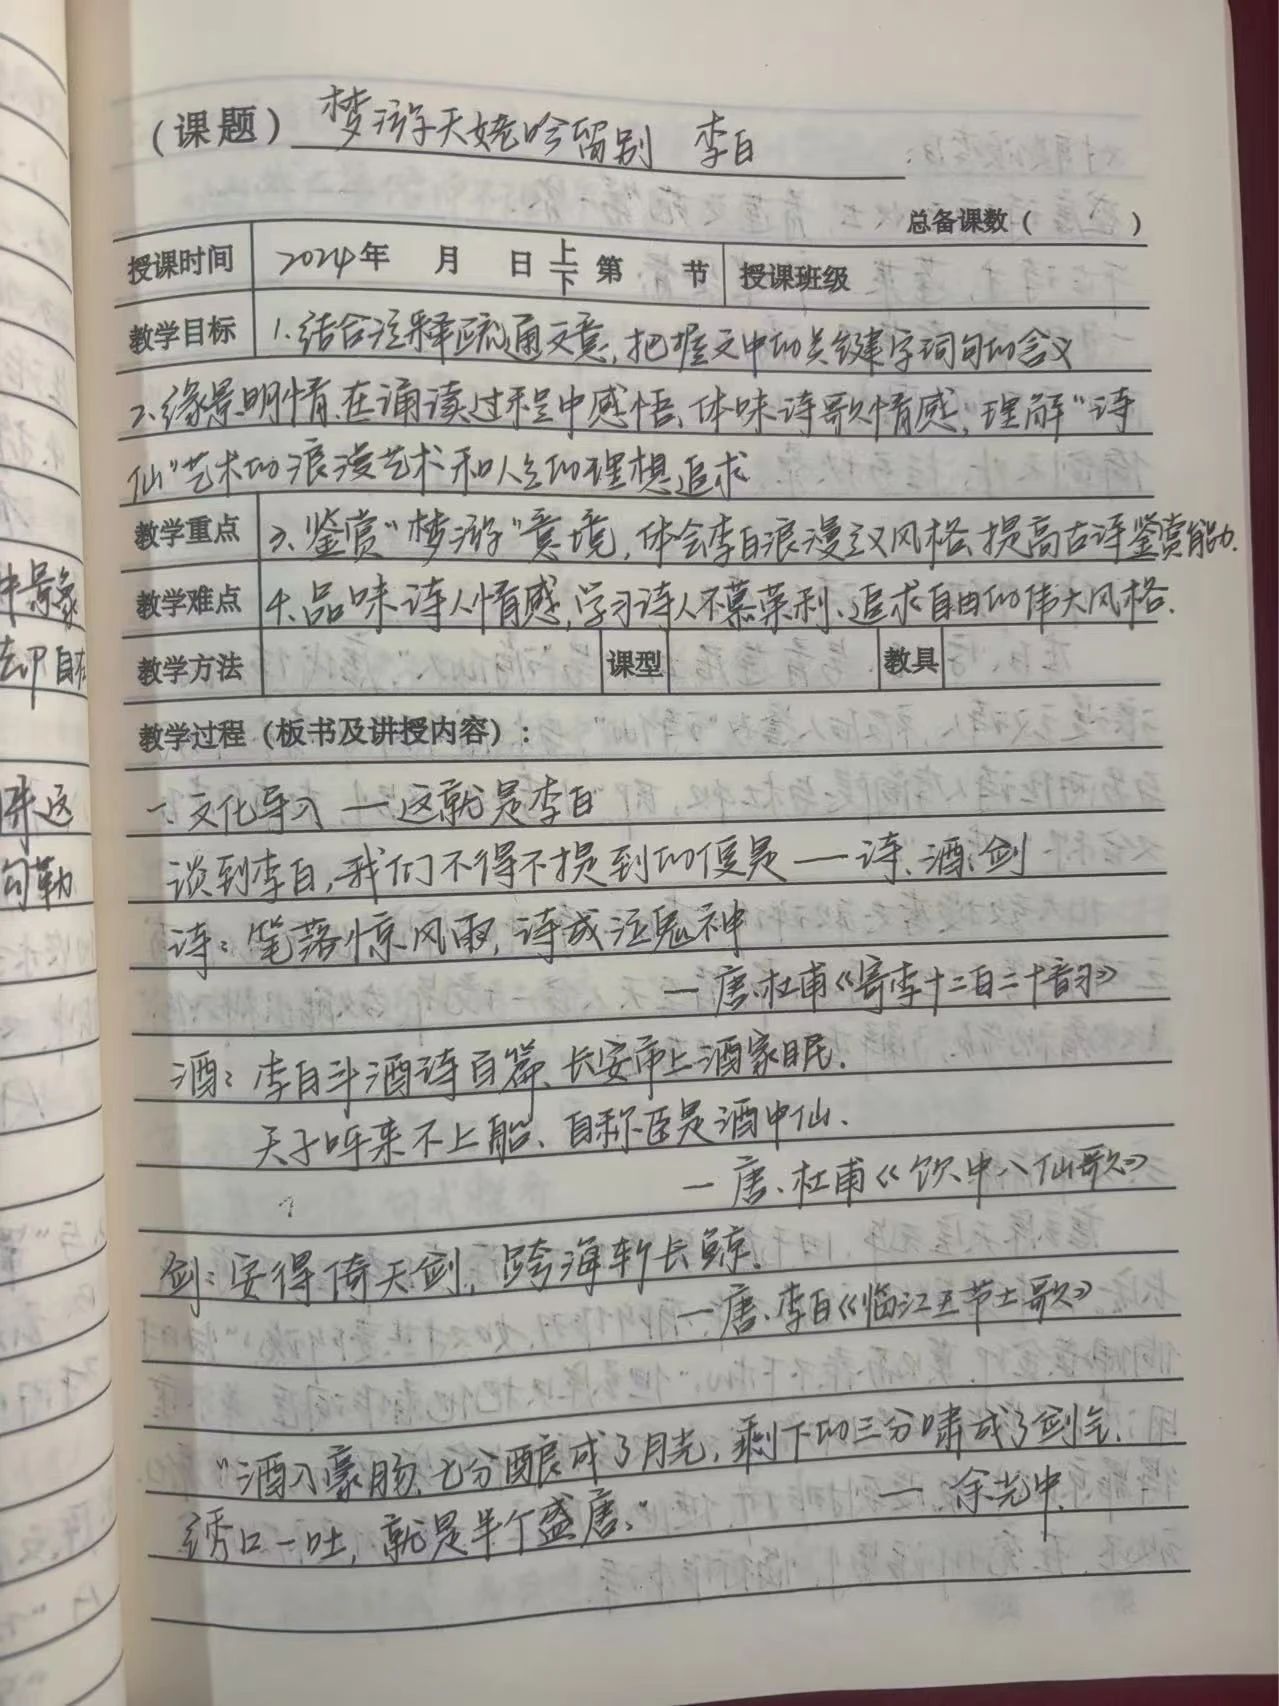 (课题) 梦游天姥吟留别 李白
总备课数( )
授课时间 2024年 月 日 上下 第 节 授课班级
教学目标 1.结合注释疏通文意,把握文中的关键字词句的含义
2.缘景明情,在诵读过程中感悟、体味诗歌情感,理解“诗
仙”艺术的浪漫艺术和人生的理想追求
教学重点 3、鉴赏“梦游”意境,体会李白浪漫主义风格,提高古诗鉴赏能力.
教学难点 4.品味诗人情感,学习诗人不慕荣利、追求自由的伟大风格.
教学方法 课型 教具
教学过程(板书及讲授内容):
一.文化导入 — 这就是李白
谈到李白,我们不得不提到的便是——诗、酒、剑
诗:笔落惊风雨,诗成泣鬼神
— 唐.杜甫《寄李十二白二十韵》
酒:李白斗酒诗百篇、长安市上酒家眠.
天子呼来不上船、自称臣是酒中仙.
— 唐.杜甫《饮中八仙歌》
剑:安得倚天剑,跨海斩长鲸.
— 唐.李白《临江王节士歌》
“酒入豪肠,七分酿成了月光,剩下的三分啸成了剑气.
绣口一吐,就是半个盛唐.”
— 余光中.
中景象
去印自在
讲这
勾勒